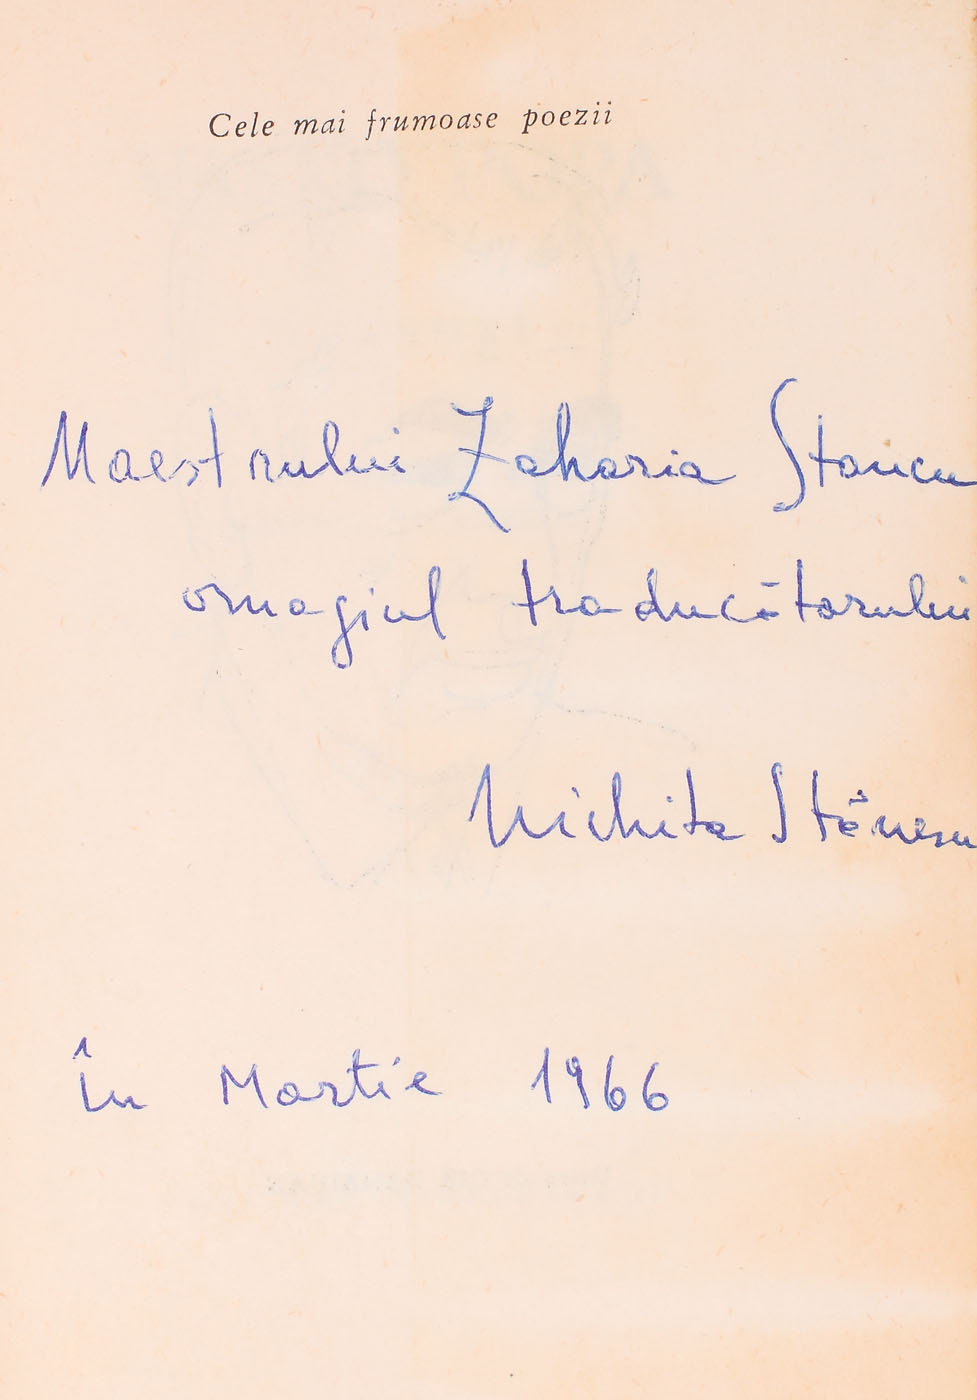 Cele mai frumoase poezii
Maestrului Zaharia Stancu
omagiul traducătorului
Nichita Stănescu
În Martie 1966